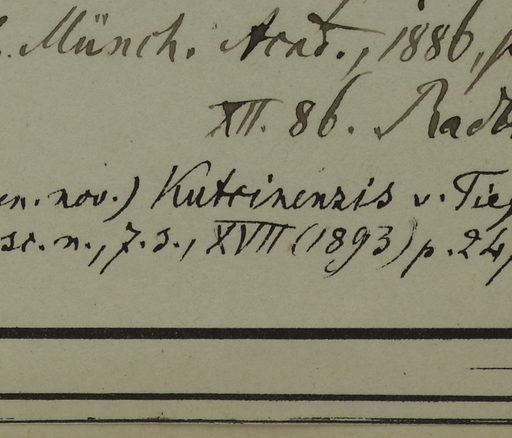 . Münch. Acad., 1886, p
XII. 86. Radt
en. nov.) Kutrinenzis v. Tieg
sc. n., 7. s., XVII (1893) p. 24,